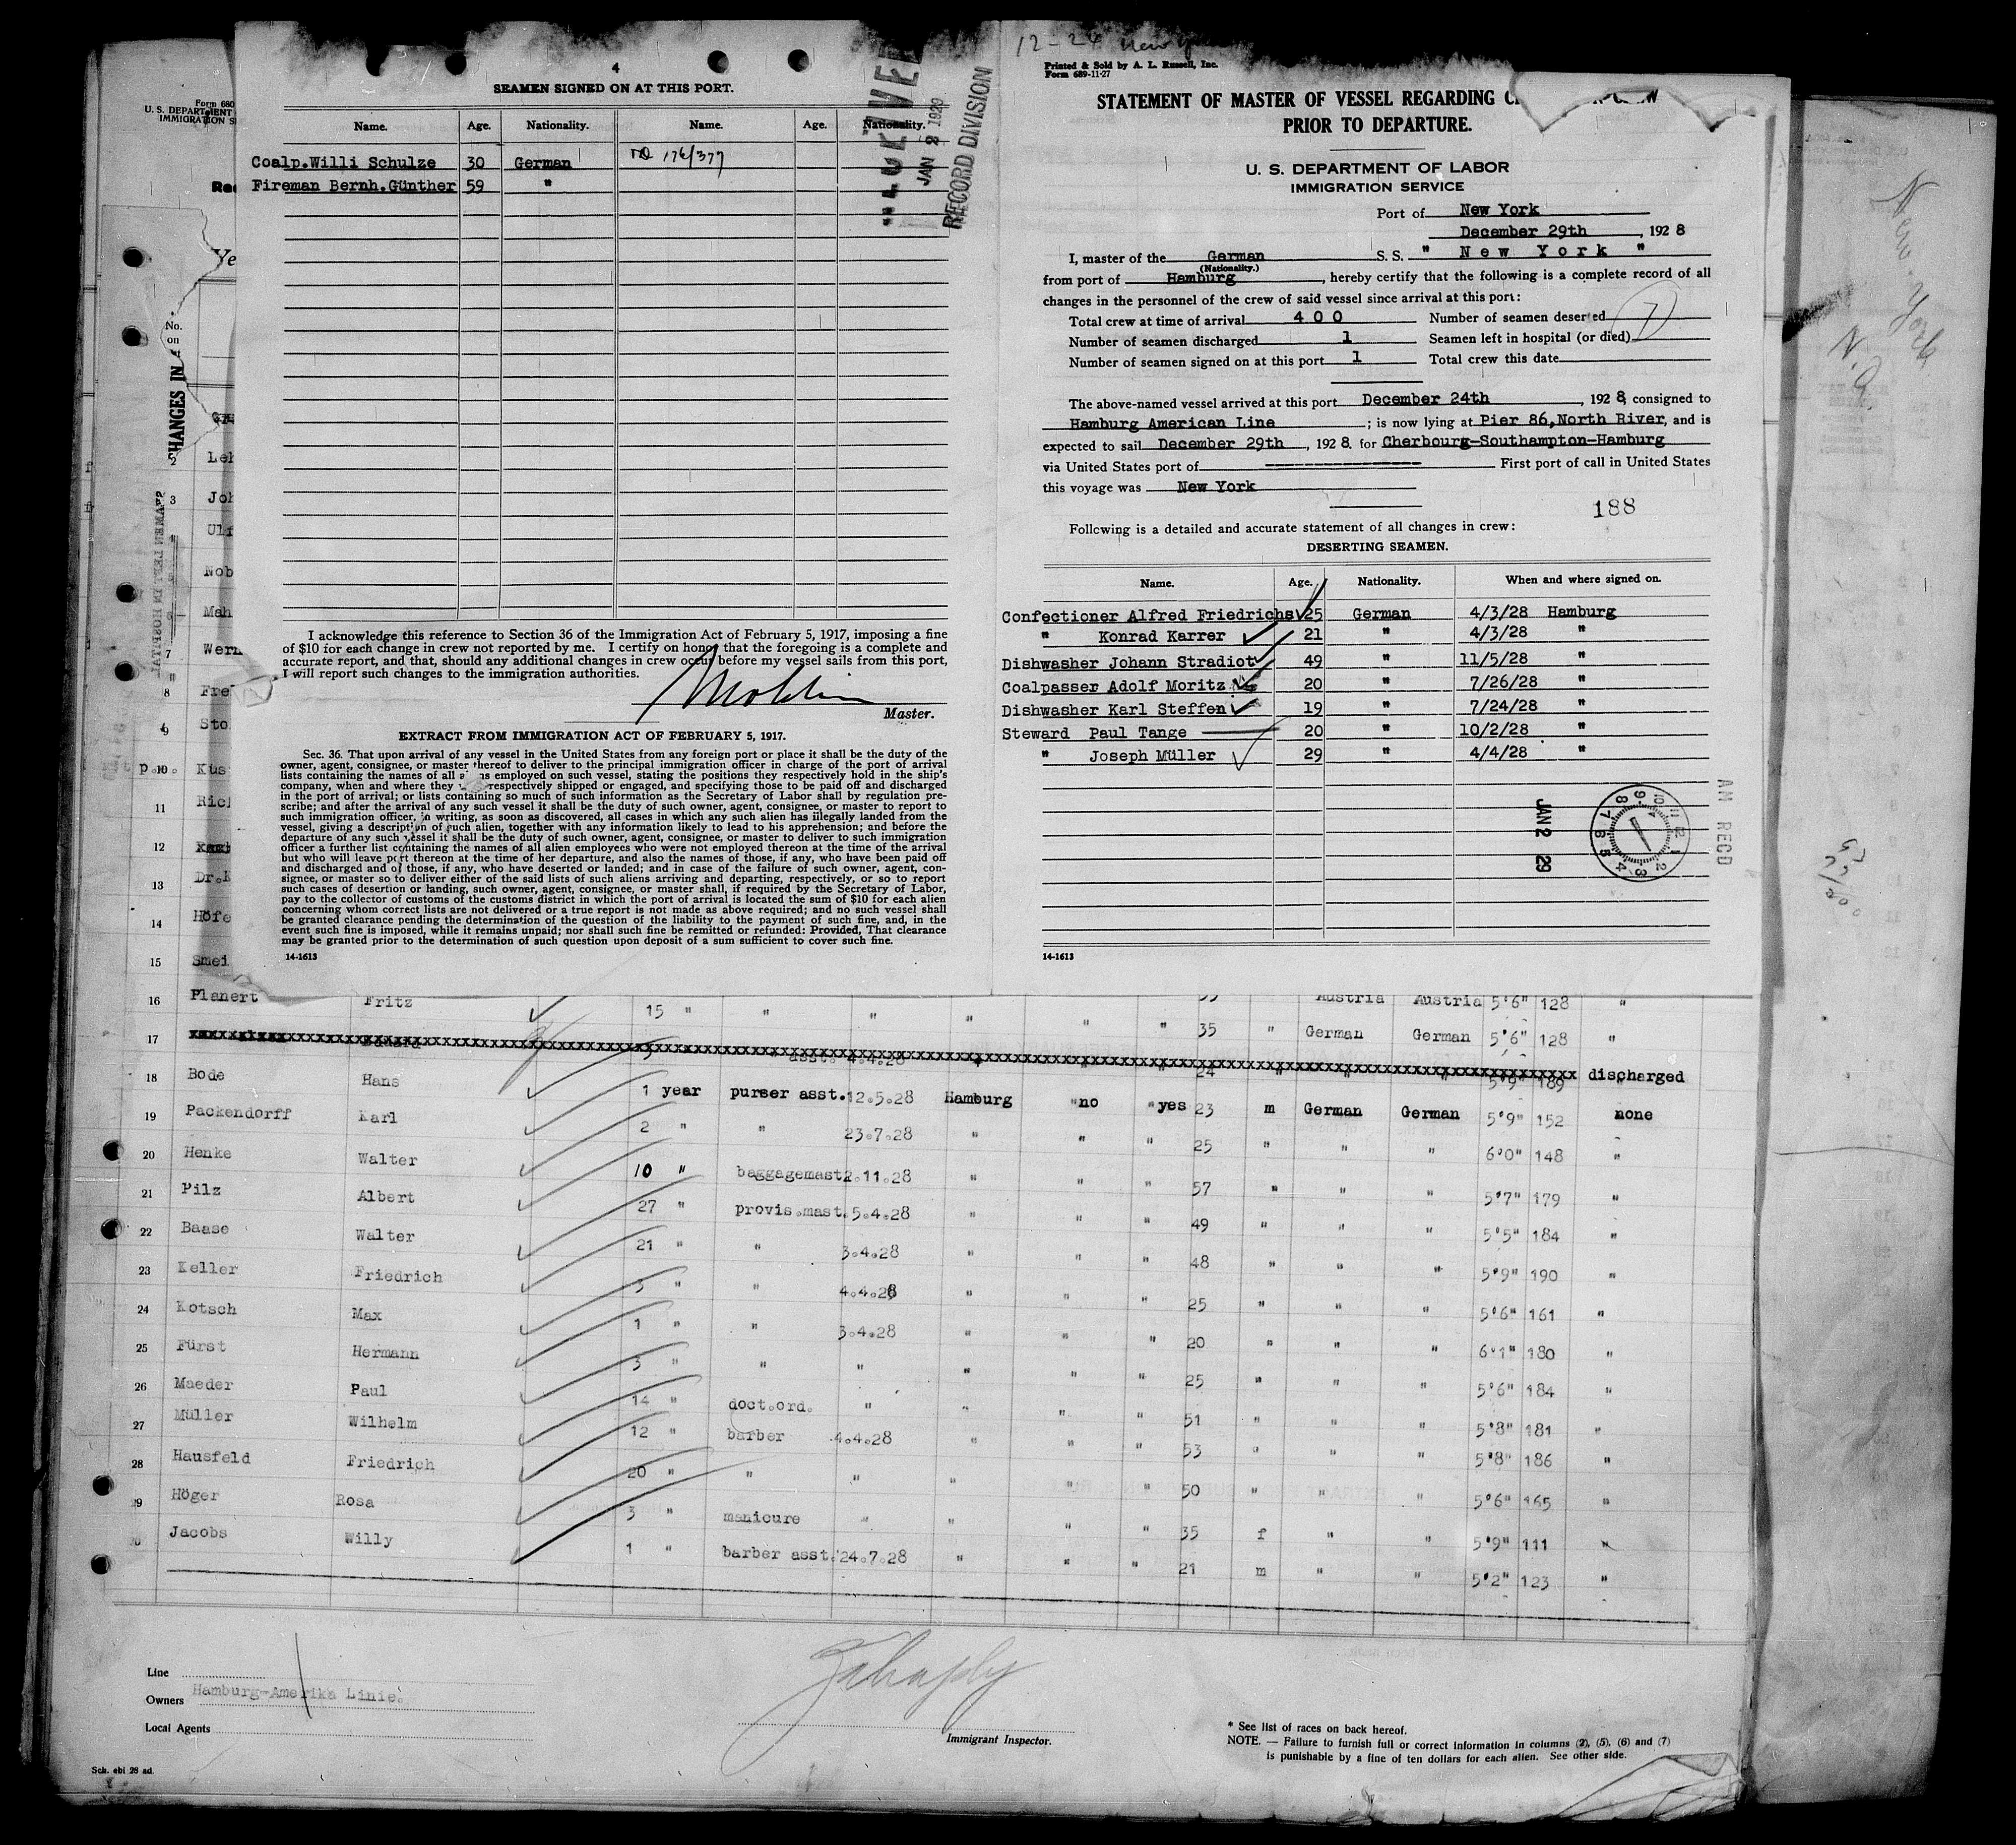 4
SEAMEN SIGNED ON AT THIS PORT.
Name. Age. Nationality. Name. Age. Nationality.
Coalp.Willi Schulze 30 German
Fireman Bernh.Günther 59 "
JAN 2 1929
RECORD DIVISION
I acknowledge this reference to Section 36 of the Immigration Act of February 5, 1917, imposing a fine
of $10 for each change in crew not reported by me. I certify on honor that the foregoing is a complete and
accurate report, and that, should any additional changes in crew occur before my vessel sails from this port,
I will report such changes to the immigration authorities.
Master.
EXTRACT FROM IMMIGRATION ACT OF FEBRUARY 5, 1917.
Sec. 36. That upon arrival of any vessel in the United States from any foreign port or place it shall be the duty of the
owner, agent, consignee, or master thereof to deliver to the principal immigration officer in charge of the port of arrival
lists containing the names of all employed on such vessel, stating the positions they respectively hold in the ship's
company, when and where they respectively shipped or engaged, and specifying those to be paid off and discharged
in the port of arrival; or lists containing so much of such information as the Secretary of Labor shall by regulation pre-
scribe; and after the arrival of any such vessel it shall be the duty of such owner, agent, consignee, or master to report to
such immigration officer, in writing, as soon as discovered, all cases in which any such alien has illegally landed from the
vessel, giving a description of such alien, together with any information likely to lead to his apprehension; and before the
departure of any such vessel it shall be the duty of such owner, agent, consignee, or master to deliver to such immigration
officer a further list containing the names of all alien employees who were not employed thereon at the time of the arrival
but who will leave port thereon at the time of her departure, and also the names of those, if any, who have been paid off
and discharged and of those, if any, who have deserted or landed; and in case of the failure of such owner, agent, con-
signee, or master so to deliver either of the said lists of such aliens arriving and departing, respectively, or so to report
such cases of desertion or landing, such owner, agent, consignee, or master shall, if required by the Secretary of Labor,
pay to the collector of customs of the customs district in which the port of arrival is located the sum of $10 for each alien
concerning whom correct lists are not delivered or a true report is not made as above required; and no such vessel shall
be granted clearance pending the determination of the question of the liability to the payment of such fine, and, in the
event such fine is imposed, while it remains unpaid; nor shall such fine be remitted or refunded: Provided, That clearance
may be granted prior to the determination of such question upon deposit of a sum sufficient to cover such fine.
14-1613
12-24 New
Printed & Sold by A. L. Russell, Inc.
Form 689-11-27
STATEMENT OF MASTER OF VESSEL REGARDING
PRIOR TO DEPARTURE.
U. S. DEPARTMENT OF LABOR
IMMIGRATION SERVICE
Port of New York
December 29th, 1928
I, master of the German S. S. " New York "
(Nationality.)
from port of Hamburg, hereby certify that the following is a complete record of all
changes in the personnel of the crew of said vessel since arrival at this port:
Total crew at time of arrival 400 Number of seamen deserted 7
Number of seamen discharged 1 Seamen left in hospital (or died)
Number of seamen signed on at this port 1 Total crew this date
The above-named vessel arrived at this port December 24th, 1928, consigned to
Hamburg American Line; is now lying at Pier 86,North River, and is
expected to sail December 29th, 1928. for Cherbourg-Southampton-Hamburg
via United States port of ---------- First port of call in United States
this voyage was New York
188
Following is a detailed and accurate statement of all changes in crew:
DESERTING SEAMEN.
Name. Age. Nationality. When and where signed on.
Confectioner Alfred Friedrichs 25 German 4/3/28 Hamburg
" Konrad Karrer 21 " 4/3/28 "
Dishwasher Johann Stradiot 49 " 11/5/28 "
Coalpasser Adolf Moritz 20 " 7/26/28 "
Dishwasher Karl Steffen 19 " 7/24/28 "
Steward Paul Tange 20 " 10/2/28 "
" Joseph Müller 29 " 4/4/28 "
JAN 2 29
AM RECD
14-1613
Form 680
U. S. DEPARTMENT
IMMIGRATION
No.
on
CHANGES IN
SEAMEN LEFT IN HOSPITAL
2 Leh
3 Joh
Ulf
Nob
Mah
7 Wern
8 Fre
9 Sto
10 Kus
11 Rich
12
13 Dr.
14 Höfe
15 Smei
16 Planert Fritz 15 " " " " " " 35 Austria Austria 5'6" 128 "
17 35 " German German 5'6" 128 "
discharged
18 Bode Hans 1 year purser asst. 12.5.28 Hamburg "no "yes 23 m German German 5'9" 152 none
19 Packendorff Karl 2 " " 23.7.28 " " " 25 " " " 6'0" 148 "
20 Henke Walter 10 " baggagemast 2.11.28 " " " 57 " " " 5'7" 179 "
21 Pilz Albert 27 " provis.mast. 5.4.28 " " " 49 " " " 5'5" 184 "
22 Baase Walter 21 " " 3.4.28 " " " 48 " " " 5'9" 190 "
23 Keller Friedrich 3 " " 4.4.28 " " " 25 " " " 5'6" 161 "
24 Kotsch Max 1 " " 3.4.28 " " " 20 " " " 6'1" 180 "
25 Fürst Hermann 3 " " " " " " 25 " " " 5'6" 184 "
26 Maeder Paul 14 " doct.ord. " " " " 51 " " " 5'8" 181 "
27 Müller Wilhelm 12 " barber 4.4.28 " " " 53 " " " 5'8" 186 "
28 Hausfeld Friedrich 20 " " " " " " 50 " " " 5'6" 165 "
29 Höger Rosa 3 " manicure " " " " 35 f " " 5'9" 111 "
30 Jacobs Willy 1 " barber asst. 24.7.28 " " " 21 m " " 5'2" 123 "
Line
Owners Hamburg-Amerika Linie.
Local Agents
Immigrant Inspector.
* See list of races on back hereof.
NOTE. — Failure to furnish full or correct information in columns (2), (5), (6) and (7)
is punishable by a fine of ten dollars for each alien. See other side.
Sch. ebi 28 ad.
New York
N.Y.